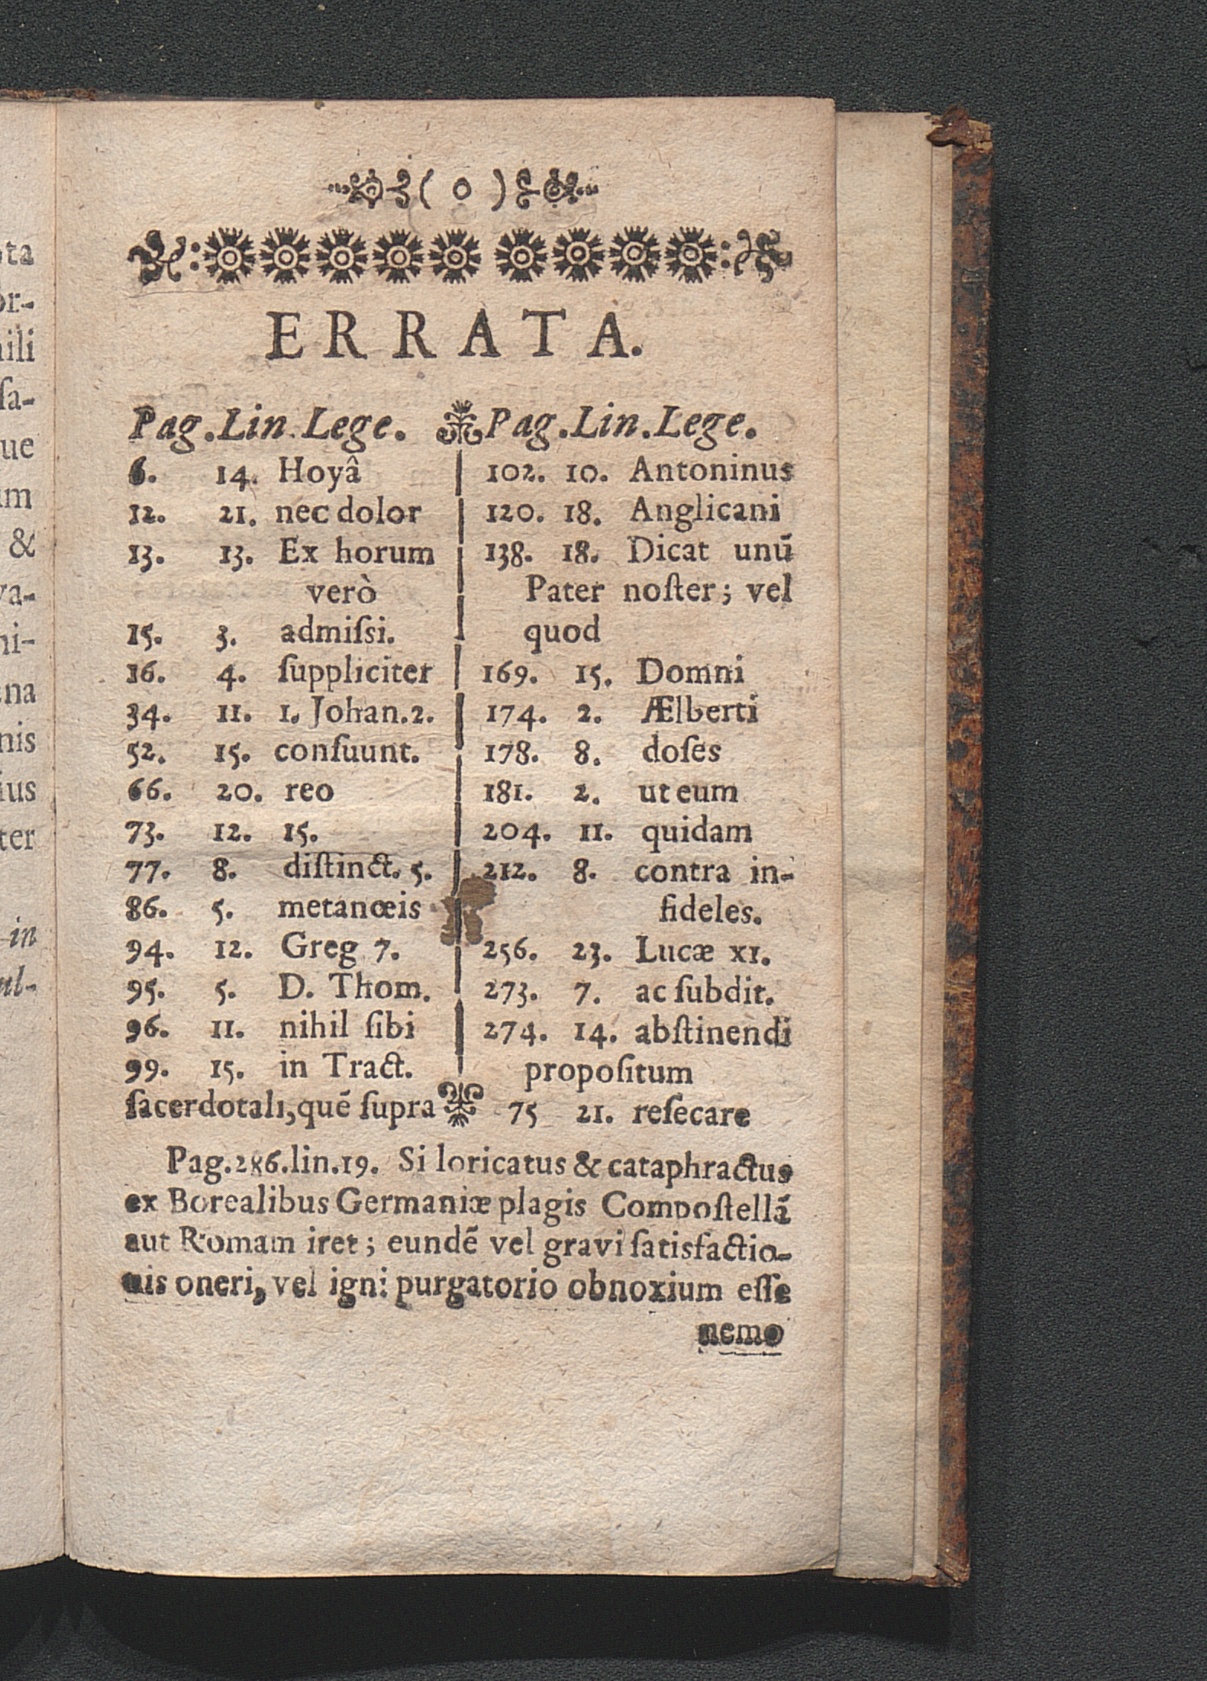 ( o )
ERRATA.
Pag.Lin.Lege.
6. 14. Hoyâ
12. 21. nec dolor
13. 13. Ex horum
verò
15. 3. admiſsi.
16. 4. ſuppliciter
34. 11. 1. Johan.2.
52. 15. conſuunt.
66. 20. reo
73. 12. 15.
77. 8. diſtinct. 5.
86. 5. metanœis
94. 12. Greg 7.
95. 5. D. Thom.
96. 11. nihil ſibi
99. 15. in Tract.
ſacerdotali,quē ſupra
Pag.Lin.Lege.
102. 10. Antoninus
120. 18. Anglicani
138. 18. Dicat unū
Pater noſter; vel
quod
169. 15. Domni
174. 2. Ælberti
178. 8. doſes
181. 2. ut eum
204. 11. quidam
212. 8. contra in-
fideles.
256. 23. Lucæ XI.
273. 7. ac ſubdit.
274. 14. abſtinendi
propoſitum
75 21. reſecare
Pag.286.lin.19. Si loricatus & cataphractus
ex Borealibus Germaniæ plagis Compoſtellā
aut Romam iret; eundē vel gravi ſatisfactio-
nis oneri, vel igni purgatorio obnoxium eſſe
nemo
ota
or-
ili
ſa-
ue
um
&
va-
ni-
na
nis
ius
ter
in
ul-